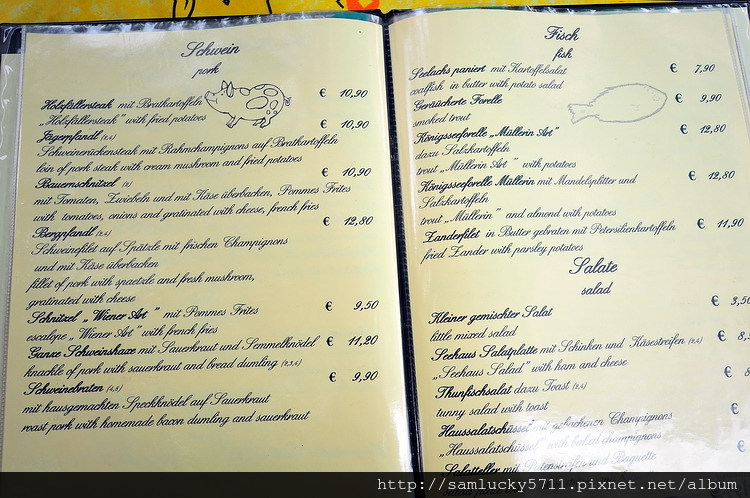 Schwein
pork
Holzfällersteak mit Bratkartoffeln € 10,90
„Holzfällersteak" with fried potatoes
Jägerpfandl (2,4) € 10,90
Schweinerückensteak mit Rahmchampignons auf Bratkartoffeln
loin of pork steak with cream mushroom and fried potatoes
Bauernschnitzel (2) € 10,90
mit Tomaten, Zwiebeln und mit Käse überbacken, Pommes Frites
with tomatoes, onions and gratinated with cheese, french fries
Bergpfandl (2,4) € 12,80
Schweinefilet auf Spätzle mit frischen Champignons
und mit Käse überbacken
fillet of pork with spaetzle and fresh mushroom,
gratinated with cheese
Schnitzel „Wiener Art" mit Pommes Frites € 9,50
escalope „Wiener Art" with french fries
Ganze Schweinshaxe mit Sauerkraut und Semmelknödel € 11,20
knuckle of pork with sauerkraut and bread dumling (2,3,4)
Schweinebraten (4,8) € 9,90
mit hausgemachten Speckknödel auf Sauerkraut
roast pork with homemade bacon dumling and sauerkraut
Fisch
fish
Seelachs paniert mit Kartoffelsalat € 7,90
coalfish in butter with potato salad
Geräucherte Forelle € 9,90
smoked trout
Königsseeforelle „Müllerin Art" € 12,80
dazu Salzkartoffeln
trout „Müllerin Art " with potatoes
Königsseeforelle Müllerin mit Mandelsplitter und € 12,80
Salzkartoffeln
trout „Müllerin" and almond with potatoes
Zanderfilet in Butter gebraten mit Petersilienkartoffeln € 11,90
fried Zander with parsley potatoes
Salate
salad
Kleiner gemischter Salat € 3,50
little mixed salad
Seehaus Salatplatte mit Schinken und Käsestreifen (2,4) € 8,
„Seehaus Salad" with ham and cheese
Thunfischsalat dazu Toast (2,4) € 8
tunny salad with toast
Haussalatschüssel mit gebackenen Champignons €
„Haussalatschüssel" with baked champignons
Salatteller mit Putenstreifen und Baguette €
http://samlucky5711.pixnet.net/album